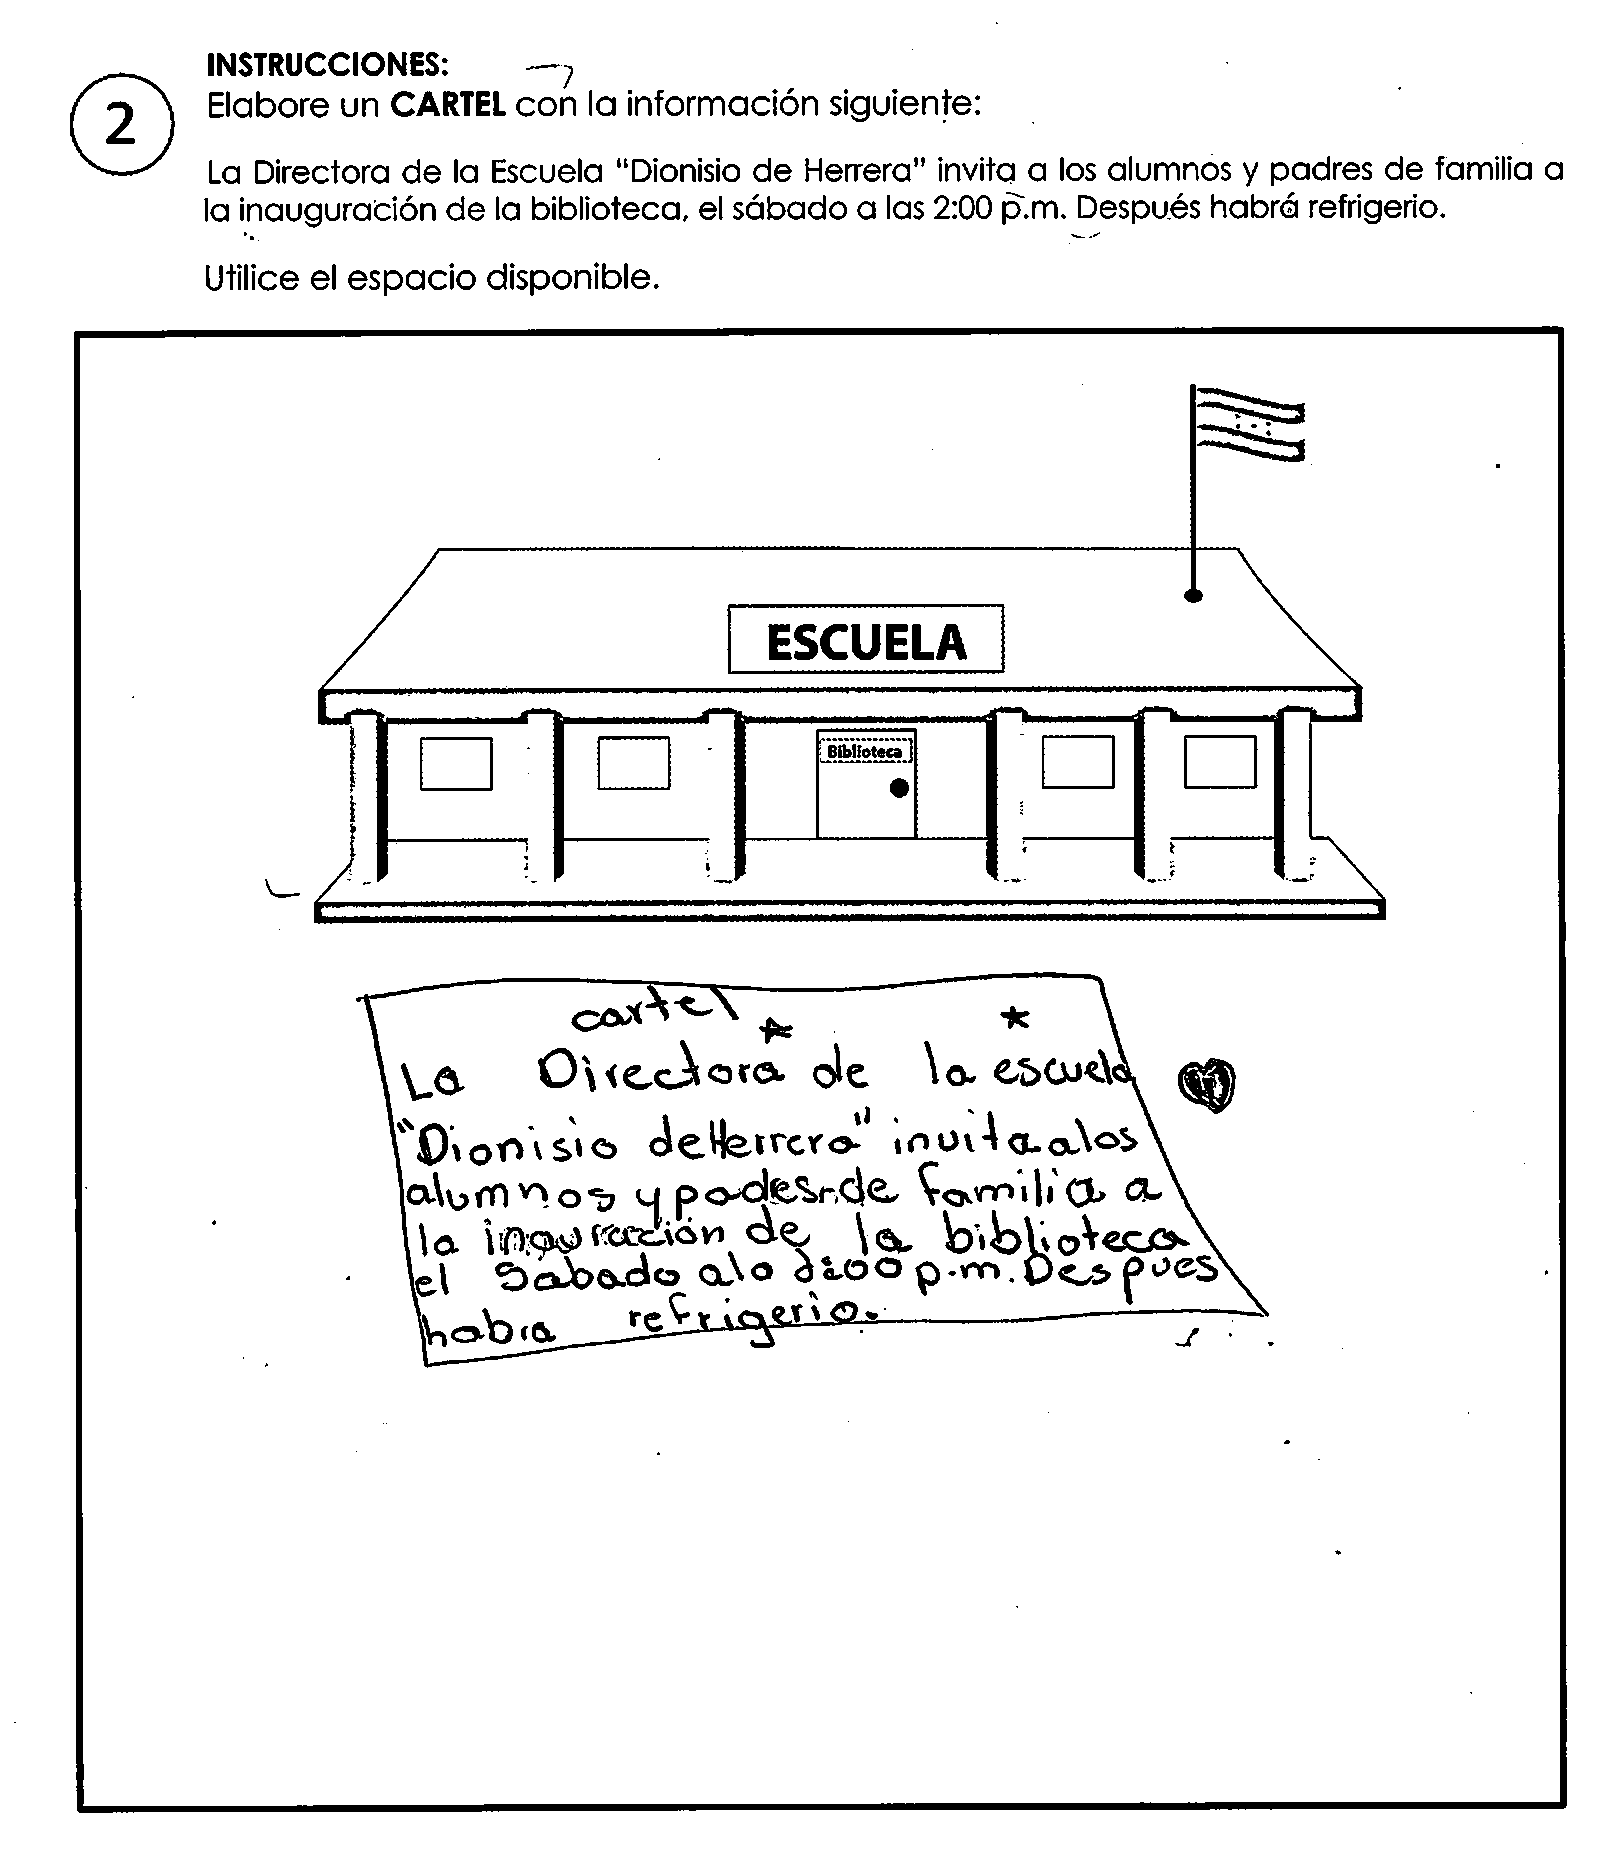 INSTRUCCIONES:
2
Elabore un CARTEL con la información siguiente:
La Directora de la Escuela "Dionisio de Herrera" invita a los alumnos y padres de familia a
la inauguración de la biblioteca, el sábado a las 2:00 p.m. Después habrá refrigerio.
Utilice el espacio disponible.
ESCUELA
Biblioteca
cartel
La Directora de la escuela
"Dionisio de Herrera" invita a los
alumnos y padesr de familia a
la inauración de la biblioteca
el Sabado a la 2:00 p.m. Despues
habra refrigerio.